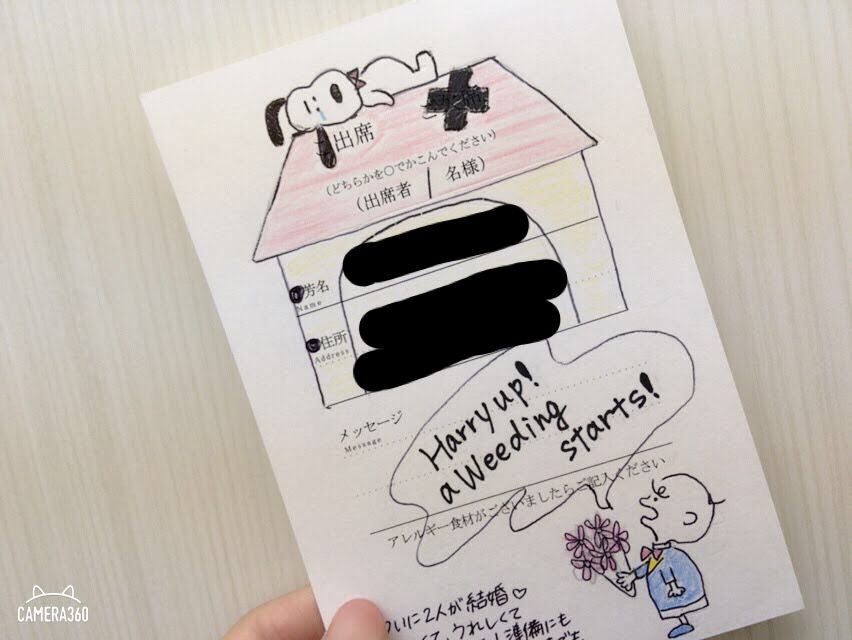 出席
(どちらかを○でかこんでください)
(出席者 / 名様)
芳名
Name
住所
Address
メッセージ
Message
Harry up!
a Weeding
starts!
アレルギー食材がございましたらご記入ください
ついに2人が結婚♡
うれしくて
準備にも
CAMERA360